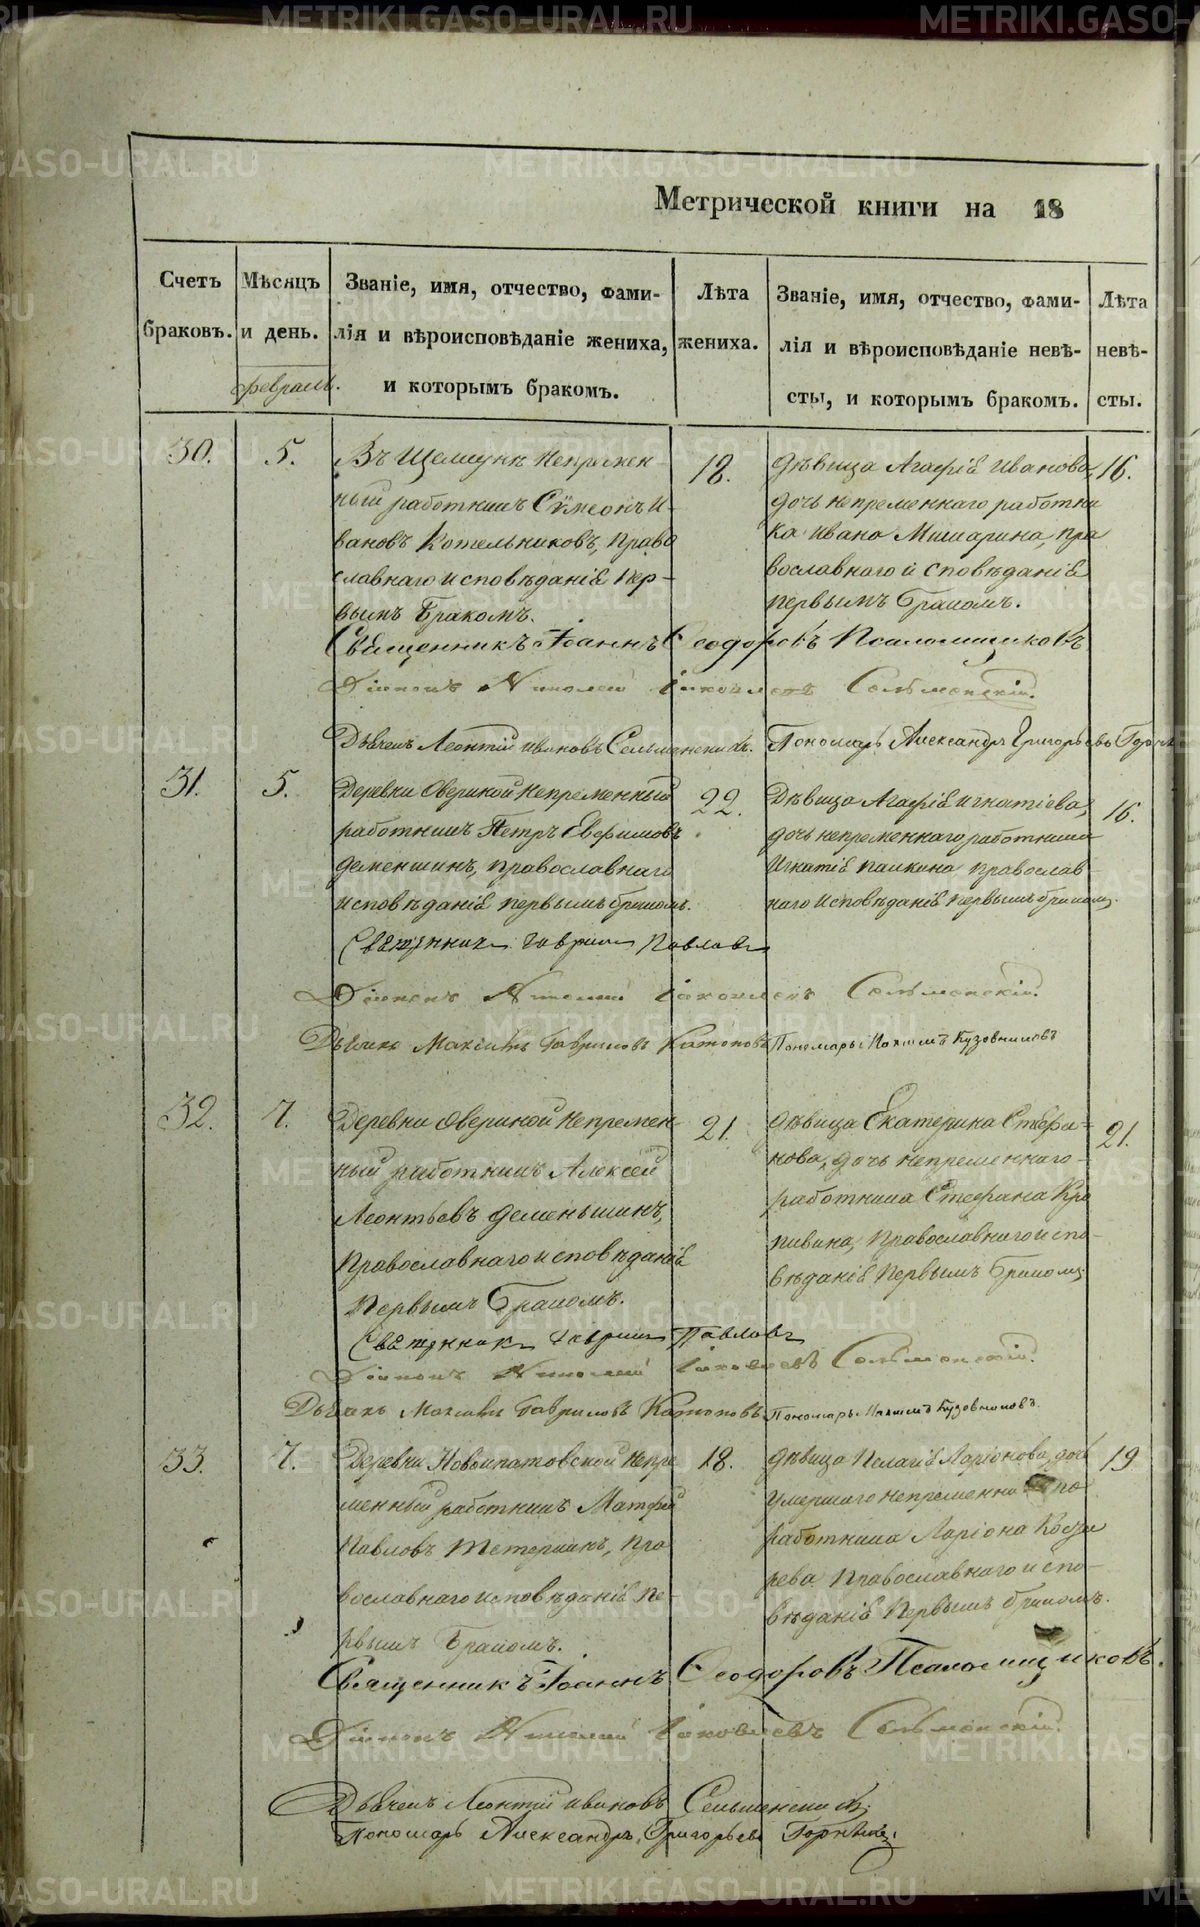 Метрической книги на 18
Счетъ браковъ.
Мѣсяцъ и день.
Званіе, имя, отчество, фами-
лія и вѣроисповѣданіе жениха,
и которымъ бракомъ.
Лѣта жениха.
Званіе, имя, отчество, фами-
лія и вѣроисповѣданіе невѣ-
сты, и которымъ бракомъ.
Лѣта невѣ-
сты.
февраль.
30.
5.
Въ Щелкунѣ непремен-
ный работникъ Сѵмеонъ И-
вановъ Котельниковъ, право
славнаго исповѣданія пер-
вымъ бракомъ.
18.
Дѣвица Агафія Иванова,
дочь непременнаго работни
ка Ивана Мишарина, пра
вославнаго исповѣданія
первымъ бракомъ.
16.
Священникъ Іоаннъ Ѳеодоровъ Псаломщиковъ
Діаконъ Николай Іаковлевъ Сельменскій.
Дьячекъ Леонтій Ивановъ Сельменскій.
Пономарь Александръ Григорьевъ
31.
5.
Деревни Авериной непременный
работникъ Петръ Евфимовъ
Деменшинъ, православнаго
исповѣданія первымъ бракомъ.
22.
Дѣвица Агафія Игнатіева,
дочь непременнаго работника
Игнатія Палкина православ-
наго исповѣданія первымъ бракомъ.
16.
Священникъ Гавриилъ Павловъ
Діаконъ Николай Іаковлевъ Сельменскій.
Дьячекъ Максимъ Гавриловъ Катоковъ
Пономарь Пахомъ Кузовниковъ
32.
7.
Деревни Авериной непремен-
ный работникъ Алексей
Леонтьевъ Деменьшинъ,
православнаго исповѣданія
первымъ бракомъ.
21.
Дѣвица Екатерина Стефа-
нова, дочь непременнаго
работника Стефана Кра
пивина, православнаго испо-
вѣданія первымъ бракомъ.
21.
Священникъ Гавриилъ Павловъ
Діаконъ Николай Іаковлевъ Сельменскій.
Дьячекъ Максимъ Гавриловъ Катоковъ
Пономарь Пахомъ Кузовниковъ.
33.
7.
Деревни Новоипатовской непре
менный работникъ Матфей
Павловъ Тетеринъ, пра
вославнаго исповѣданія пе-
рвымъ бракомъ.
18.
Дѣвица Пелагія Ларіонова, дочь
умершаго непременнаго
работника Ларіона
православнаго испо-
вѣданія первымъ бракомъ.
19
Священникъ Іоаннъ Ѳеодоровъ Псаломщиковъ.
Діаконъ Николай Іаковлевъ Сельменскій.
Дьячекъ Леонтій Ивановъ Сельменскій.
Пономарь Александръ Григорьевъ
METRIKI.GASO-URAL.RU